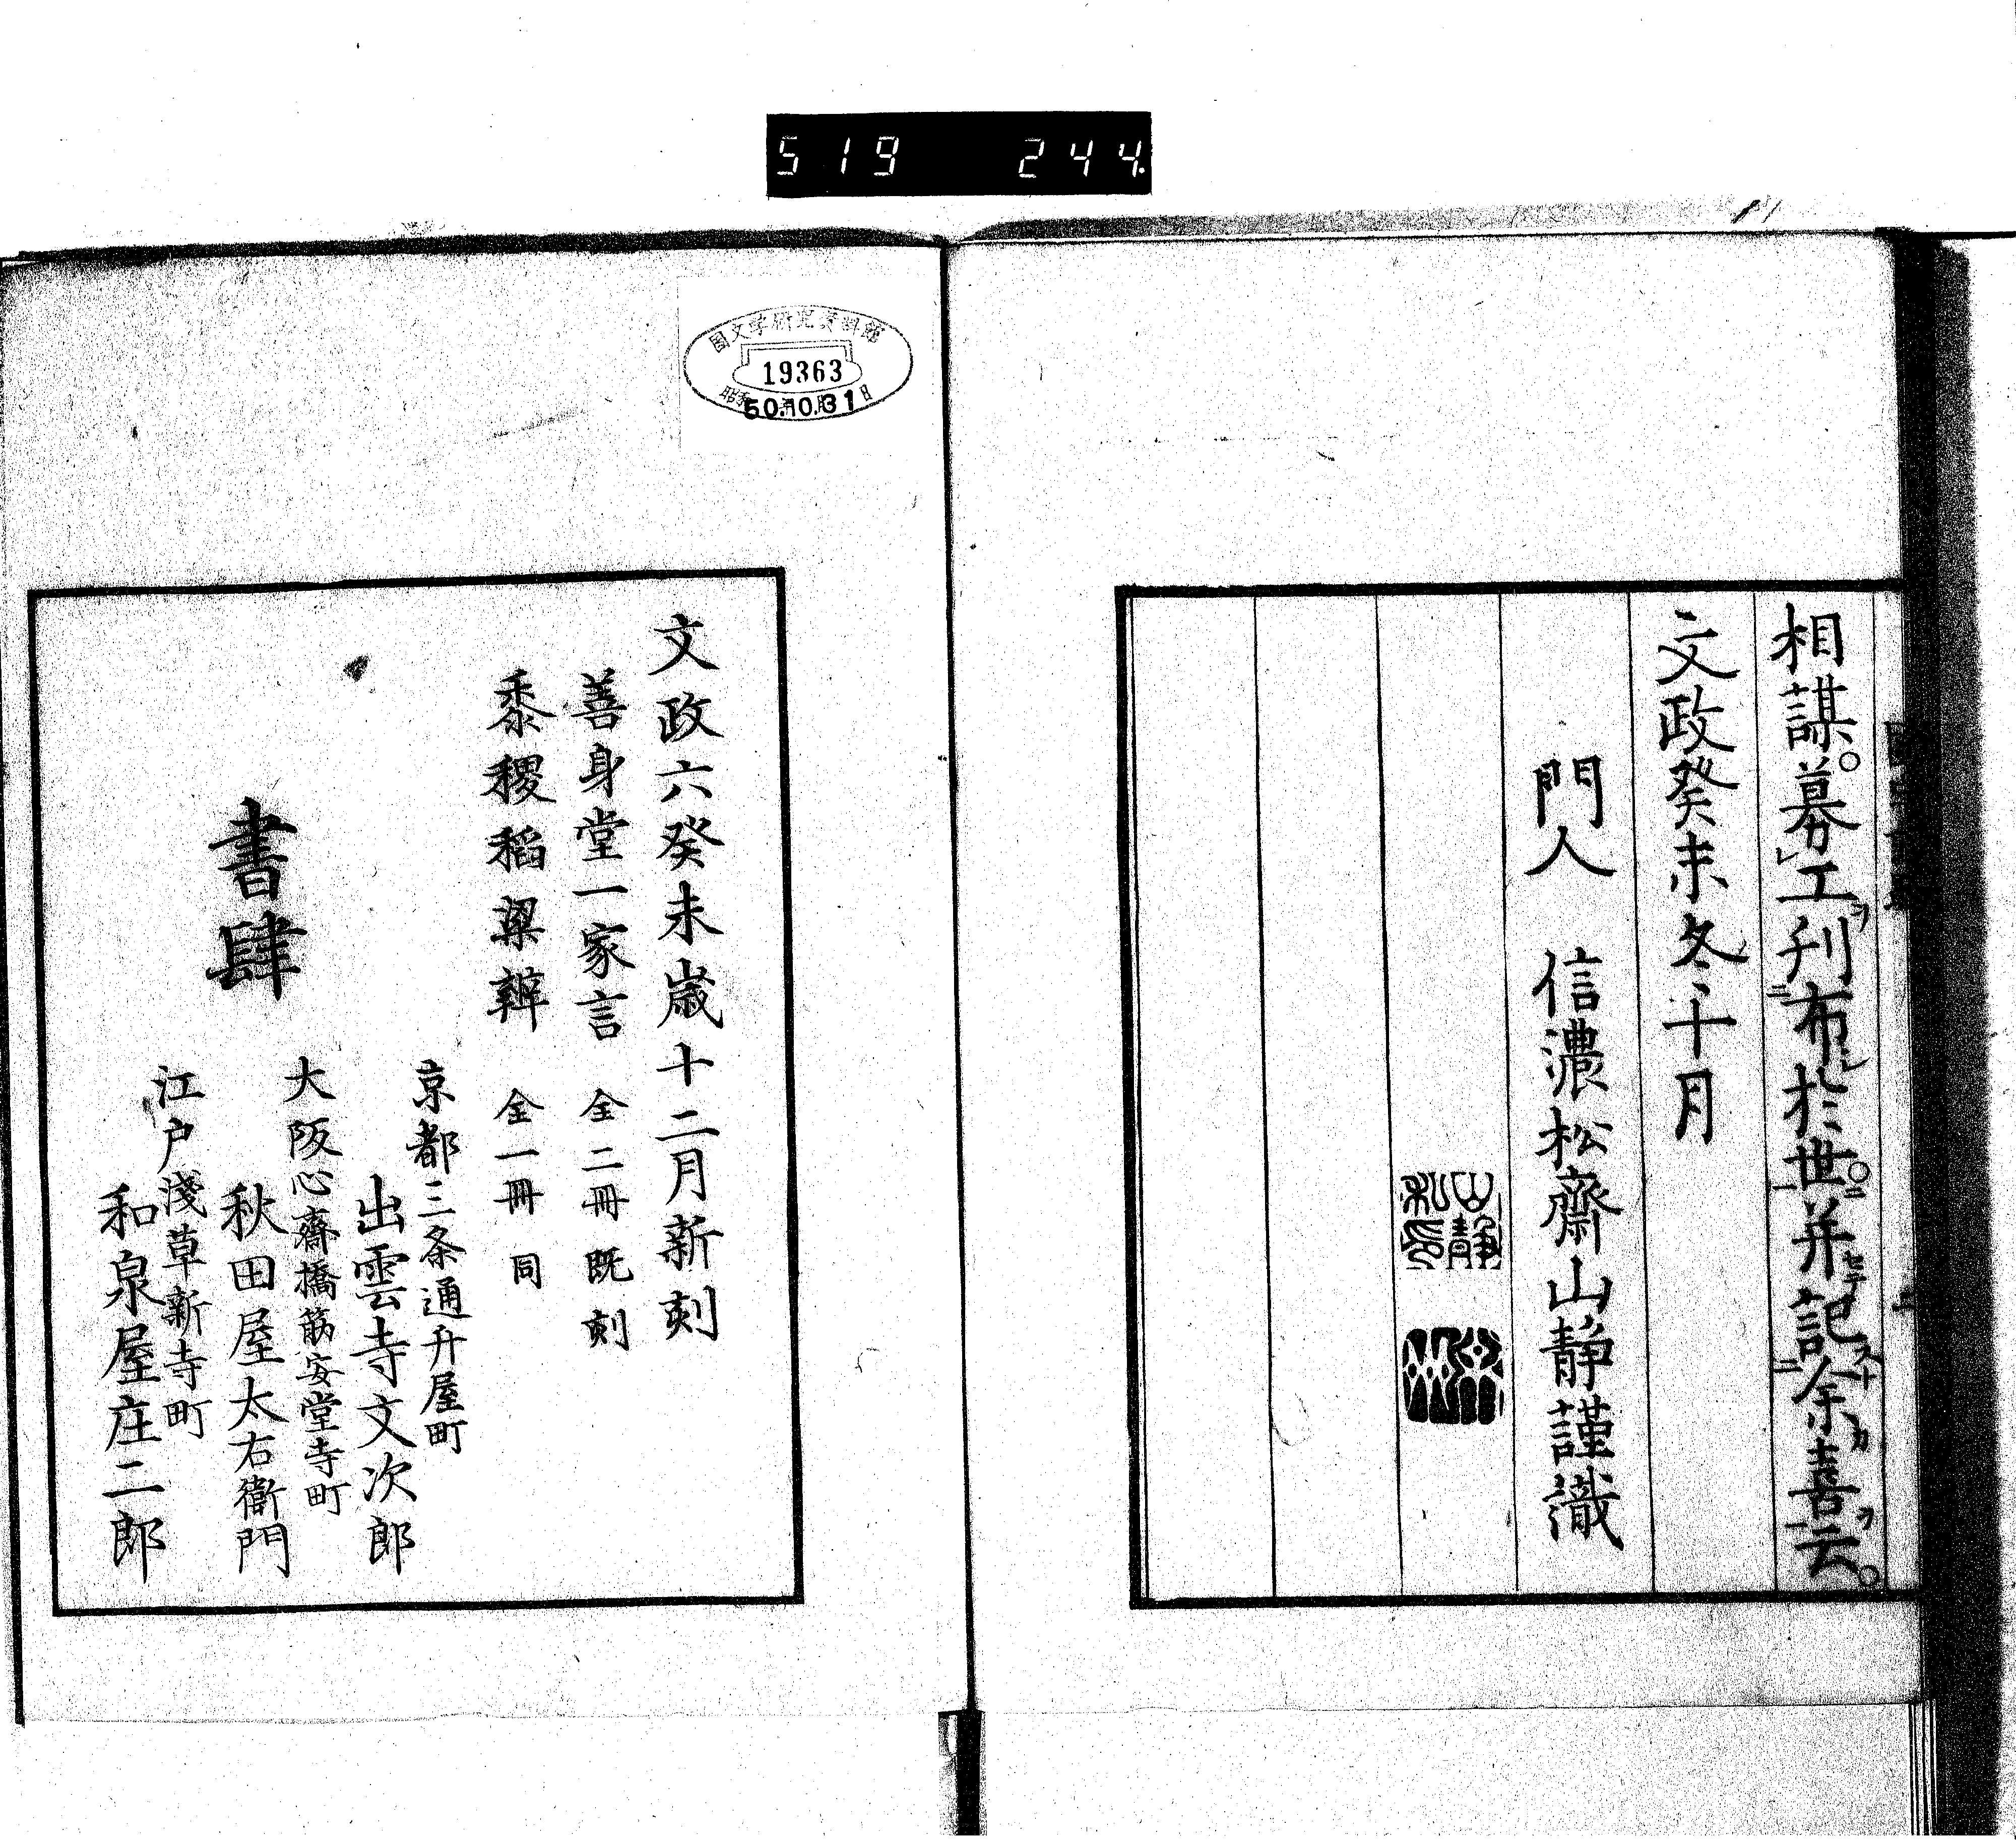 519 244.
相謀。募レ工ヲ刊ニ布シ於世一。并セテ記スト余カ喜ヲ一云。
文政癸未冬十月
門人 信濃松齋山静謹識
山静私印
國文学研究資料館
19363
昭和50年10月31日
文政六癸未歳十二月新刻
善身堂一家言 全二冊 既刻
黍稷稻粱辨 全一冊 同
書肆
京都三条通升屋町
出雲寺文次郎
大阪心齋橋筋安堂寺町
秋田屋太右衞門
江戸淺草新寺町
和泉屋庄二郎